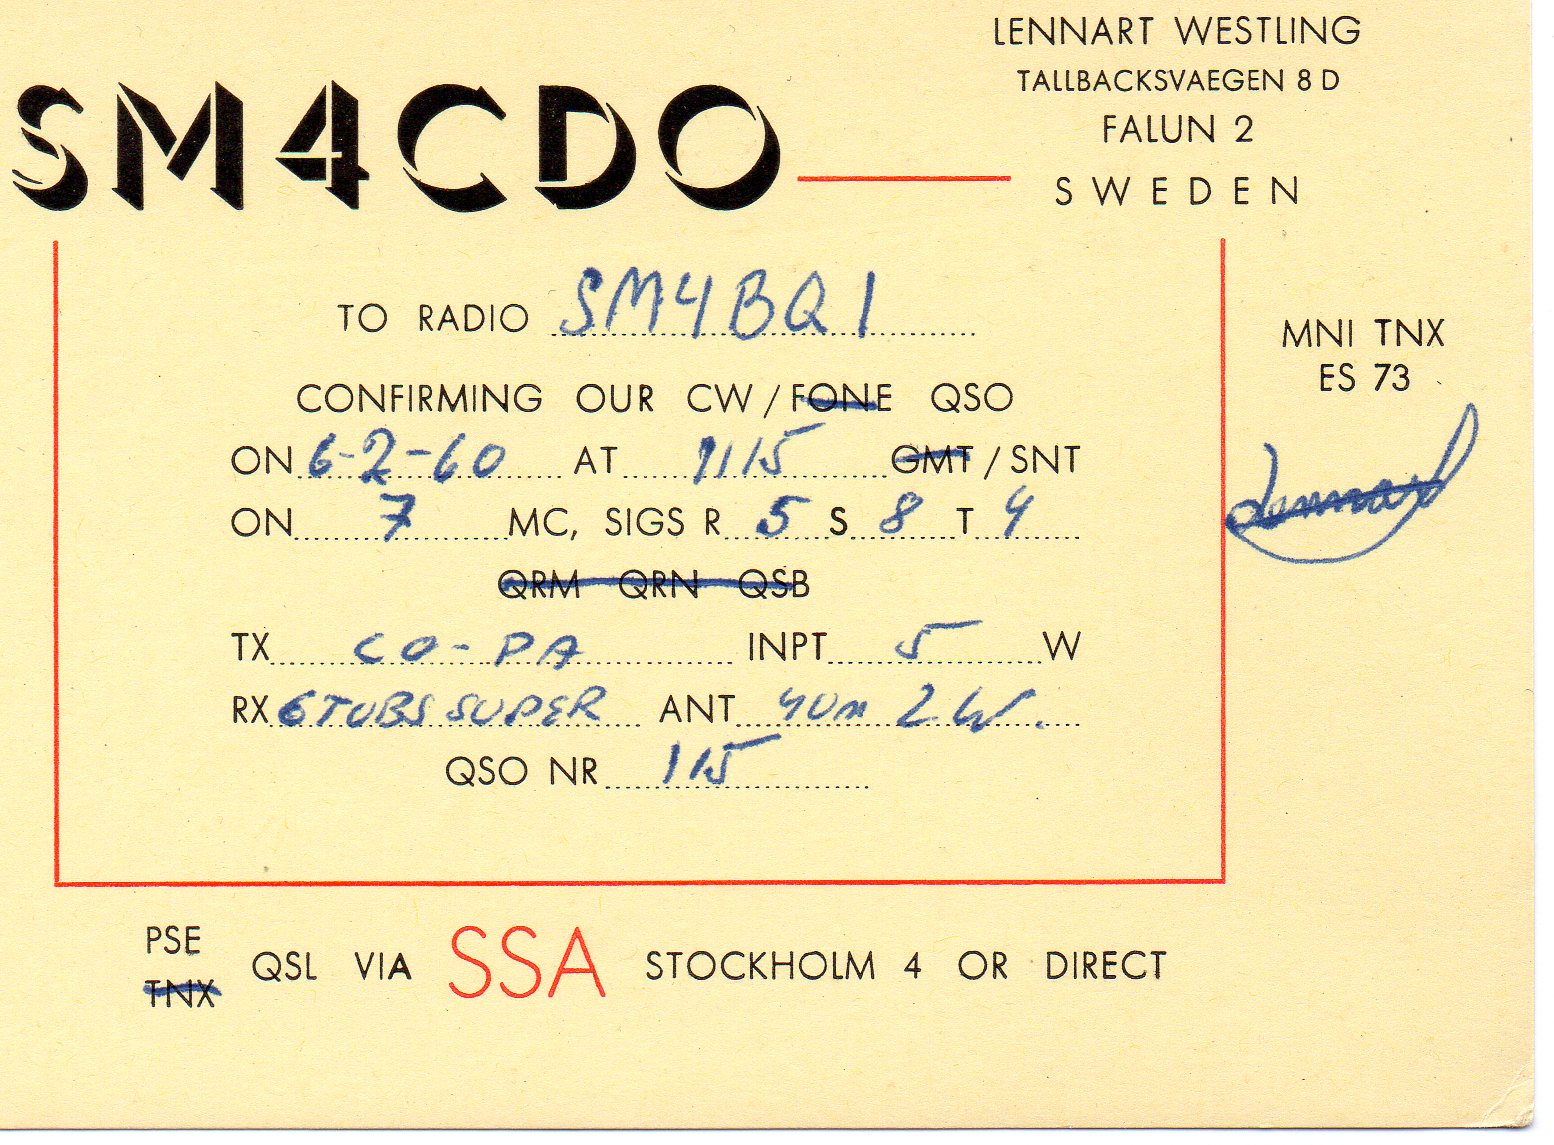 SM4CDO
LENNART WESTLING
TALLBACKSVAEGEN 8 D
FALUN 2
SWEDEN
TO RADIO SM4BQI
CONFIRMING OUR CW / FONE QSO
ON 6-2-60 AT 1115 GMT / SNT
ON 7 MC, SIGS R 5 S 8 T 9
QRM QRN QSB
TX CO-PA INPT 5 W
RX 6 TUBS SUPER ANT 40m LW.
QSO NR 115
MNI TNX
ES 73
Lennart
PSE
TNX
QSL VIA SSA STOCKHOLM 4 OR DIRECT